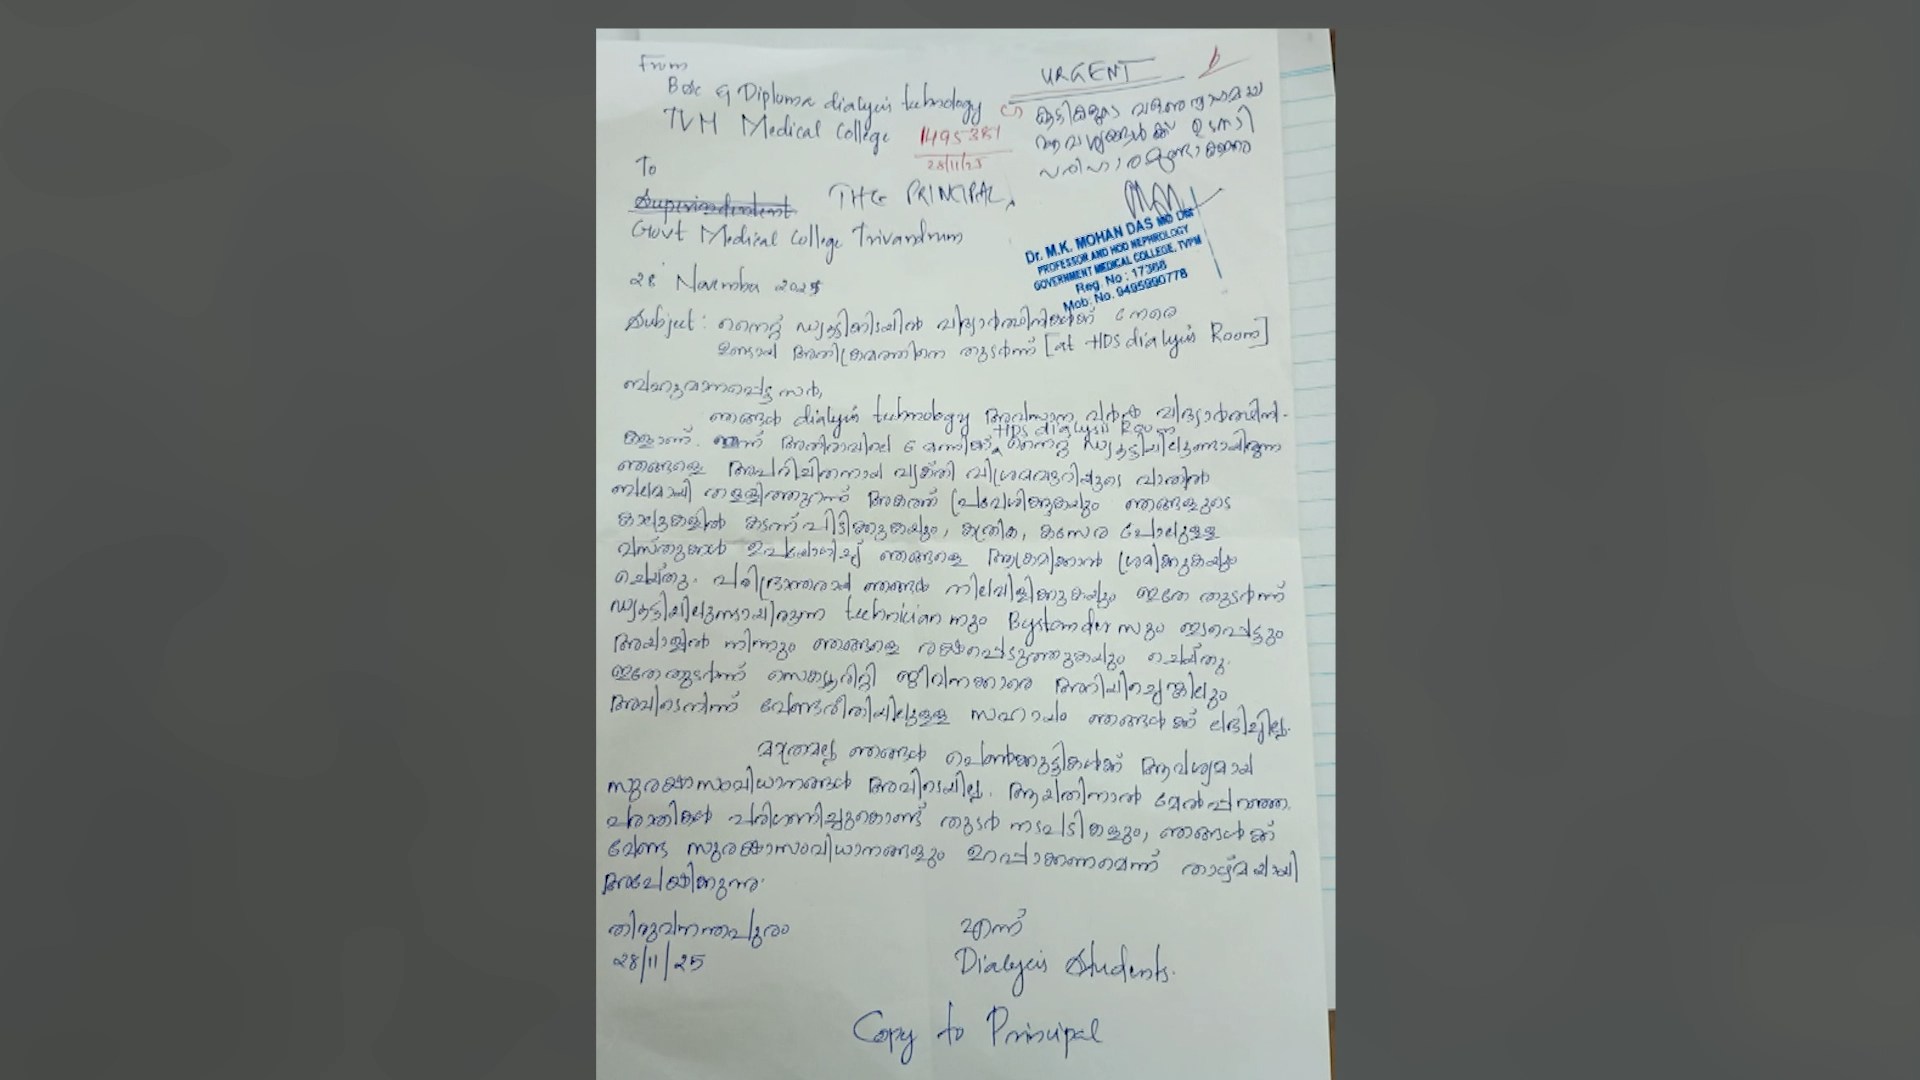 From
Bsc & Diploma dialysis technology
TVM Medical College
1495381
28/11/25
URGENT
കുട്ടികളുടെ
ആവശ്യങ്ങൾക്ക് ഉടനടി
പരിഹാരമുണ്ടാക്കണം
To
Superintendent THE PRINCIPAL,
Govt Medical College Trivandrum
Dr. M.K. MOHAN DAS MD DM
PROFESSOR AND HOD NEPHROLOGY
GOVERNMENT MEDICAL COLLEGE, TVPM
Reg. No : 17368
Mob: No. 9495990778
28 November 2025
Subject: നൈറ്റ് ഡ്യൂട്ടിക്കിടയിൽ വിദ്യാർത്ഥിനികൾക്ക് നേരെ
ഉണ്ടായ അതിക്രമത്തിനെ തുടർന്ന് [at HDS dialysis Room]
ബഹുമാനപ്പെട്ട സർ,
ഞങ്ങൾ dialysis technology അവസാന വർഷ വിദ്യാർത്ഥിനി-
കളാണ്. ഇന്ന് അതിരാവിലെ 6 മണിക്ക് HDS dialysis Room നൈറ്റ് ഡ്യൂട്ടിയിലുണ്ടായിരുന്ന
ഞങ്ങളെ അപരിചിതനായ വ്യക്തി വിശ്രമമുറിയുടെ വാതിൽ
ബലമായി തള്ളിത്തുറന്ന് അകത്ത് പ്രവേശിക്കുകയും ഞങ്ങളുടെ
കാലുകളിൽ കടന്ന് പിടിക്കുകയും, കത്രിക, കസേര പോലുള്ള
വസ്തുക്കൾ ഉപയോഗിച്ച് ഞങ്ങളെ ആക്രമിക്കാൻ ശ്രമിക്കുകയും
ചെയ്തു. പരിഭ്രാന്തരായ ഞങ്ങൾ നിലവിളിക്കുകയും ഇതേ തുടർന്ന്
ഡ്യൂട്ടിയിലുണ്ടായിരുന്ന technician നും Bystander സും ഇടപെട്ടും
അയാളിൽ നിന്നും ഞങ്ങളെ രക്ഷപ്പെടുത്തുകയും ചെയ്തു.
ഇതേതുടർന്ന് സെക്യൂരിറ്റി ജീവനക്കാരെ അറിയിച്ചെങ്കിലും
അവിടെനിന്ന് വേണ്ടരീതിയിലുള്ള സഹായം ഞങ്ങൾക്ക് ലഭിച്ചില്ല.
മാത്രമല്ല ഞങ്ങൾ പെൺകുട്ടികൾക്ക് ആവശ്യമായ
സുരക്ഷാസംവിധാനങ്ങൾ അവിടെയില്ല. ആയതിനാൽ മേൽപ്പറഞ്ഞ
പരാതികൾ പരിഗണിച്ചുകൊണ്ട് തുടർ നടപടികളും, ഞങ്ങൾക്ക്
വേണ്ട സുരക്ഷാസംവിധാനങ്ങളും ഉറപ്പാക്കണമെന്ന് താഴ്മയായി
അപേക്ഷിക്കുന്നു.
തിരുവനന്തപുരം എന്ന്
28/11/25 Dialysis Students.
Copy to Principal